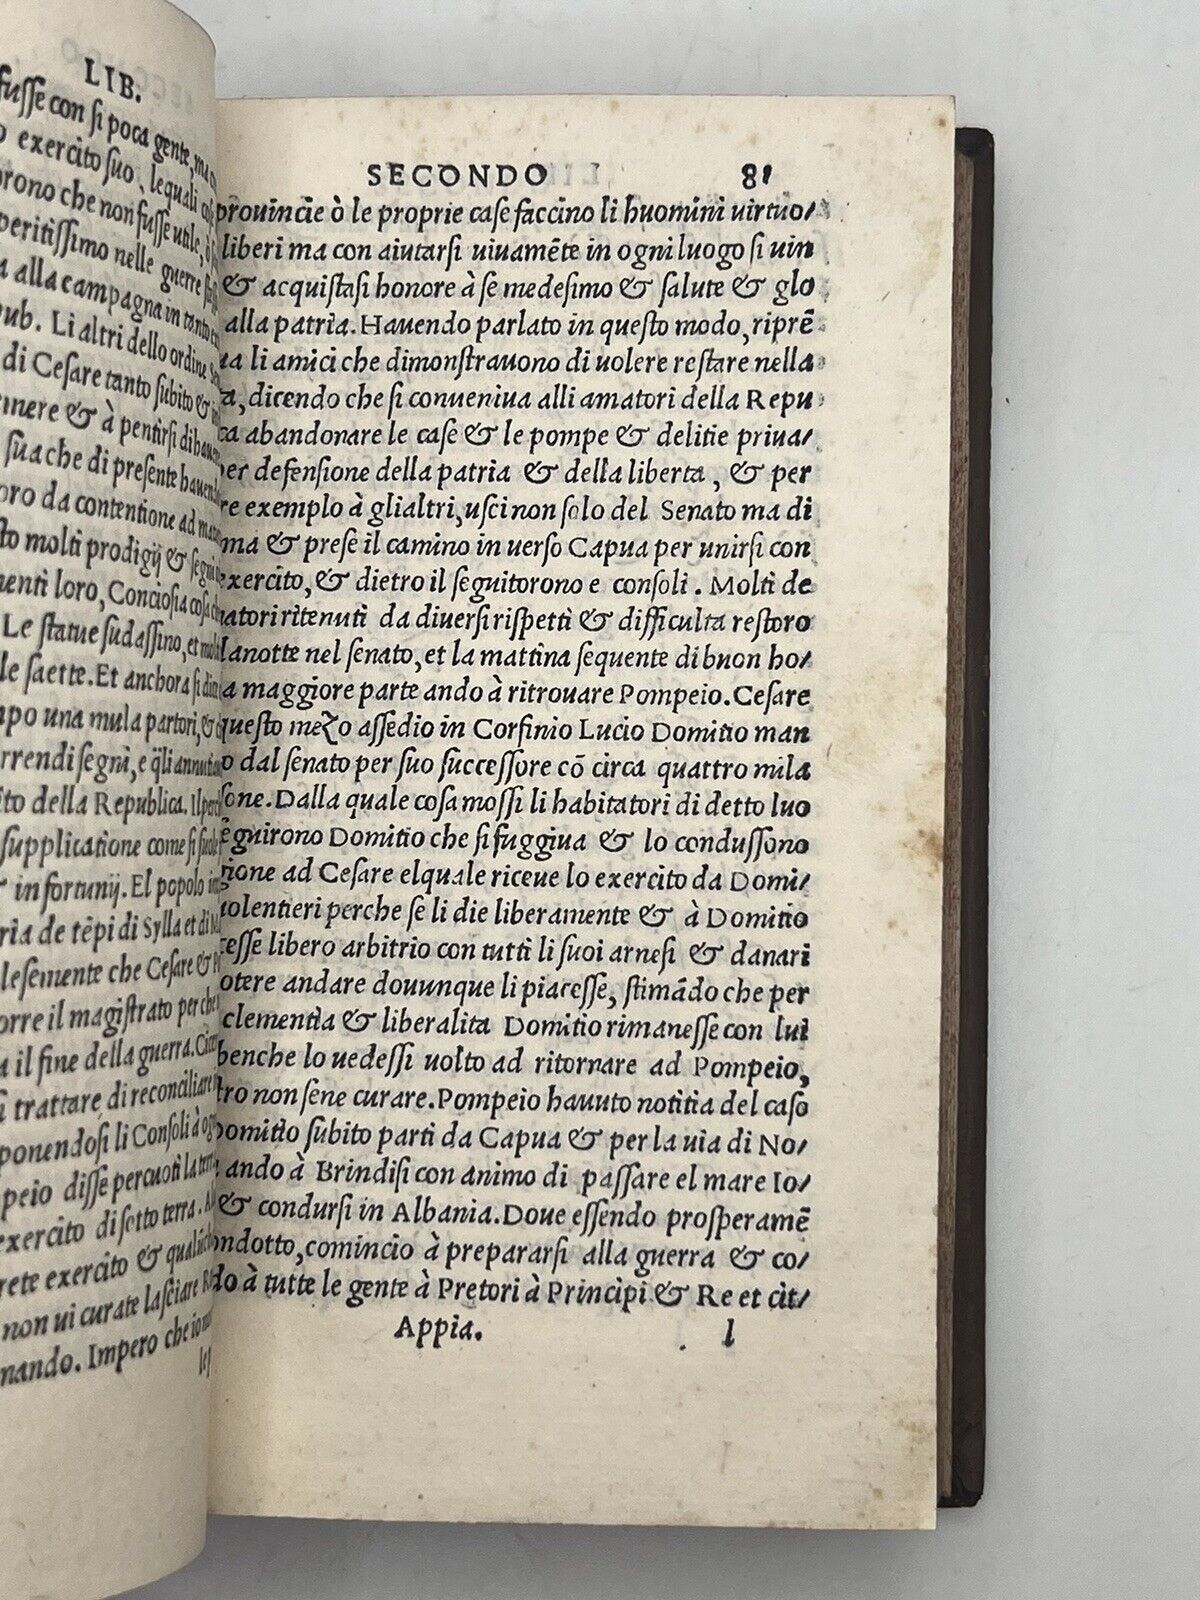 LIB.
fusse con si poca gente, ma
exercito suo, lequali
orono che non fusse utile, ò
peritissimo nelle guerre
a alla campagna in tanto
pub. Li altri dello ordine
di Cesare tanto subito &
emere & à pentirsi di
sua che di presente
oro da contentione ad
sto molti prodigij &
menti loro, Conciosia cosa
Le statue sudassino, et
le saette. Et anchora si
mpo una mula partori, &
rrendi segni, e q̃li
ito della Republica. Il
supplicatione come si
infortunij. El popolo
ria de tẽpi di Sylla et di
lesemente che Cesare &
orre il magistrato per che
a il fine della guerra.
si trattare di reconciliare
ponendosi li Consoli à
peio disse percuoti la
exercito di sotto terra.
rete exercito &
non ui curate lasciare
nando. Impero che io
SECONDO 81
prouincie ò le proprie case faccino li huomini uirtuo/
liberi ma con aiutarsi uiuamẽte in ogni luogo si uin
& acquistasi honore à se medesimo & salute & glo
alla patria. Hauendo parlato in questo modo, riprẽ
ua li amici che dimonstrauono di uolere restare nella
ta, dicendo che si conueniua alli amatori della Repu
ca abandonare le case & le pompe & delitie priua/
per defensione della patria & della liberta, & per
re exemplo à glialtri, usci non solo del Senato ma di
ma & prese il camino in uerso Capua per unirsi con
exercito, & dietro il seguitorono e consoli. Molti de
natori ritenuti da diuersi rispetti & difficulta restoro
lanotte nel senato, et la mattina sequente di buon ho/
a maggiore parte ando à ritrouare Pompeio. Cesare
questo mezo assedio in Corfinio Lucio Domitio man
o dal senato per suo successore cõ circa quattro mila
sone. Dalla quale cosa mossi li habitatori di detto luo
seguirono Domitio che si fuggiua & lo condussono
gione ad Cesare elquale riceue lo exercito da Domi/
uolentieri perche se li die liberamente & à Domitio
cesse libero arbitrio con tutti li suoi arnesi & danari
otere andare douunque li piacesse, stimãdo che per
clementia & liberalita Domitio rimanesse con lui
benche lo uedessi uolto ad ritornare ad Pompeio,
tro non sene curare. Pompeio hauuto notitia del caso
Domitio subito parti da Capua & per la uia di No/
ando à Brindisi con animo di passare el mare Io/
& condursi in Albania. Doue essendo prosperamẽ
ondotto, comincio à prepararsi alla guerra & co/
do à tutte le gente à Pretori à Principi & Re et cit/
Appia. l